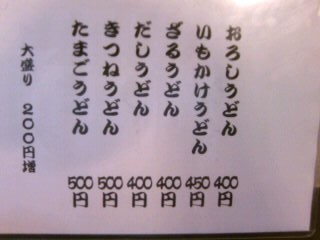 おろしうどん 400円
いもかけうどん 450円
ざるうどん 400円
だしうどん 400円
きつねうどん 500円
たまごうどん 500円
大盛り 200円増